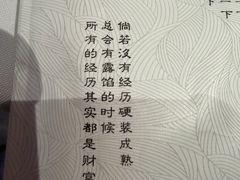 下
倘若没有经历硬装成熟
总会有露馅的时候
所有的经历其实都是财富